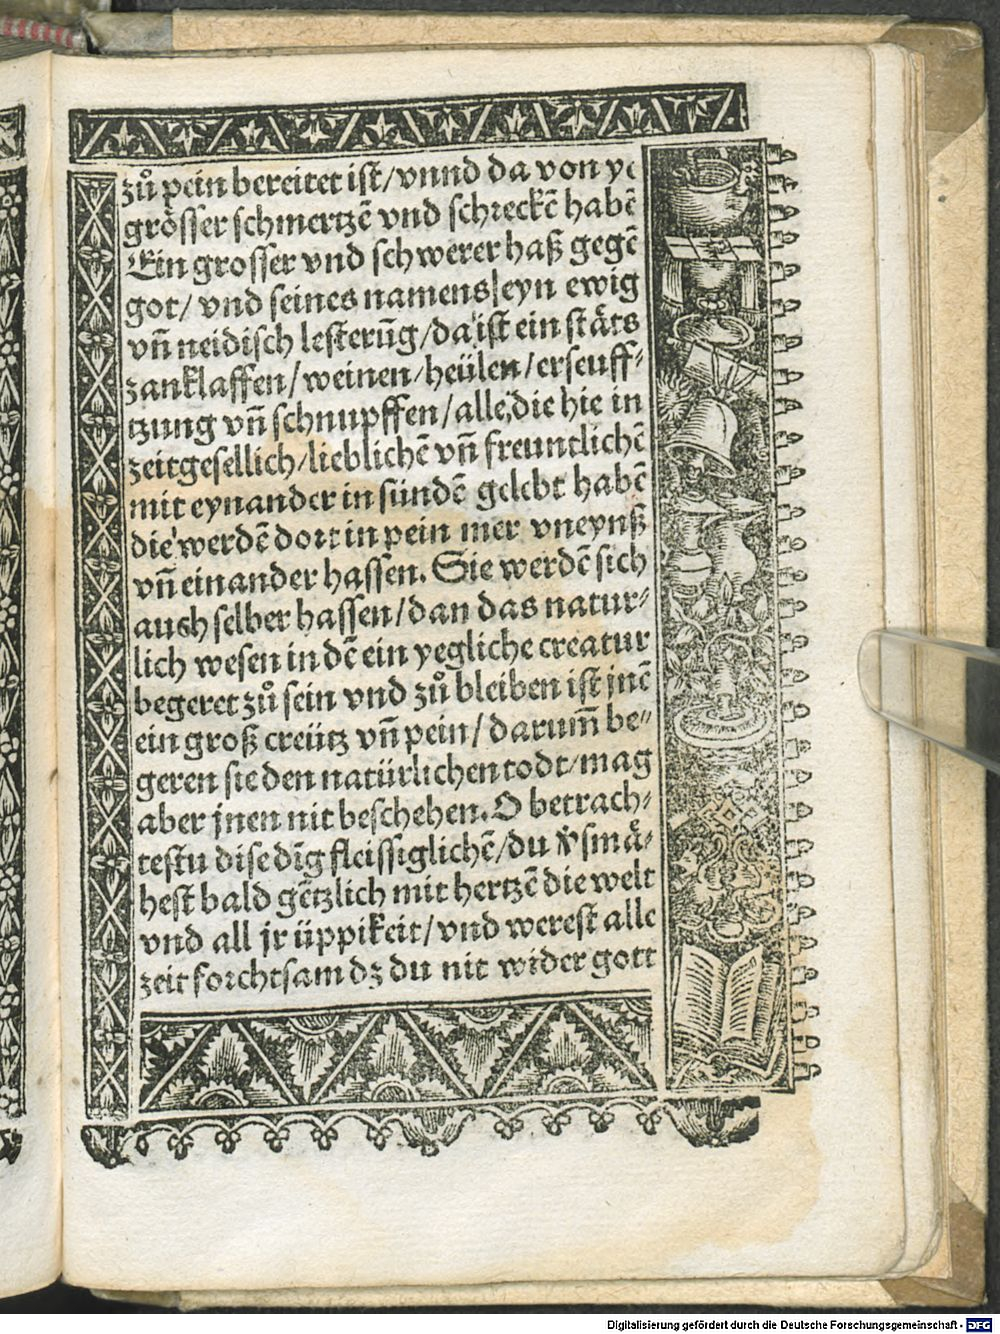 zů pein bereitet ist/vnnd da von ye
grösser schmertzē vnd schreckē habē
Ein grosser vnd schwerer haß gegē
got/ vnd seines namens/eyn ewig
vñ neidisch lesterūg/da ist ein stäts
zanklaffen/weinen/heülen/erseuff⸗
tzung vñ schnupffen/alle,die hie in
zeitgesellich/lieblichē vñ freuntlichē
mit eynander in sündē gelebt habē
die werdē dort in pein mer vneynß
vñ einander hassen. Sie werdē sich
auch selber hassen/dan das natur⸗
lich wesen in dē ein yegliche creatur
begeret zů sein vnd zů bleiben ist jnē
ein groß creütz vñ pein/darum̄ be⸗
geren sie den natürlichen todt/mag
aber jnen nit beschehen. O betrach⸗
testu dise dīg fleissiglichē/du v̾smä⸗
hest bald gētzlich mit hertzē die welt
vnd all jr üppikeit/vnd werest alle
zeit forchtsam dz du nit wider gott
Digitalisierung gefördert durch die Deutsche Forschungsgemeinschaft - DFG